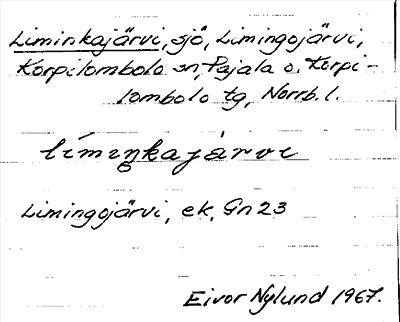 Liminkajärvi, sjö, Limingojärvi,
Korpilombolo sn, Pajala o. Korpi-
lombolo tg, Norrb. l.
líminkajärvi
Limingojärvi, ek. Gn 23
Eivor Nylund 1967.